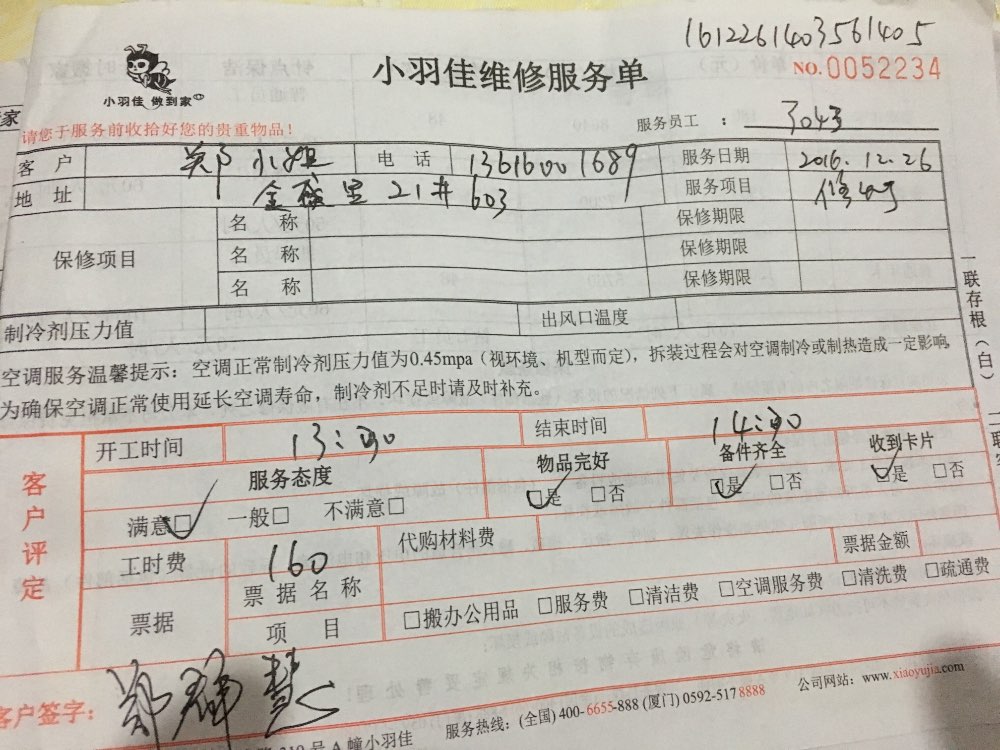 1612261403561405
小羽佳 做到家
小羽佳维修服务单
NO.0052234
请您于服务前收拾好您的贵重物品！
服务员工 ： 3043
客 户 郑小姐 电 话 13616001689 服务日期 2016.12.26
地 址 21# 603 服务项目 修
保修项目 名 称 保修期限
名 称 保修期限
名 称 保修期限
制冷剂压力值 出风口温度
空调服务温馨提示：空调正常制冷剂压力值为0.45mpa（视环境、机型而定），拆装过程会对空调制冷或制热造成一定影响，
为确保空调正常使用延长空调寿命，制冷剂不足时请及时补充。
一联存根（白）
客户评定
开工时间 13:30 结束时间 14:30
服务态度 物品完好 备件齐全 收到卡片
满意□ 一般□ 不满意□ □是 □否 □是 □否 □是 □否
工时费 160 代购材料费
票据 票据名称 票据金额
项 目 □搬办公用品 □服务费 □清洁费 □空调服务费 □清洗费 □疏通费
客户签字：
服务热线：(全国) 400-6655-888 (厦门) 0592-5178888 公司网站：www.xiaoyujia.com
310号A幢小羽佳